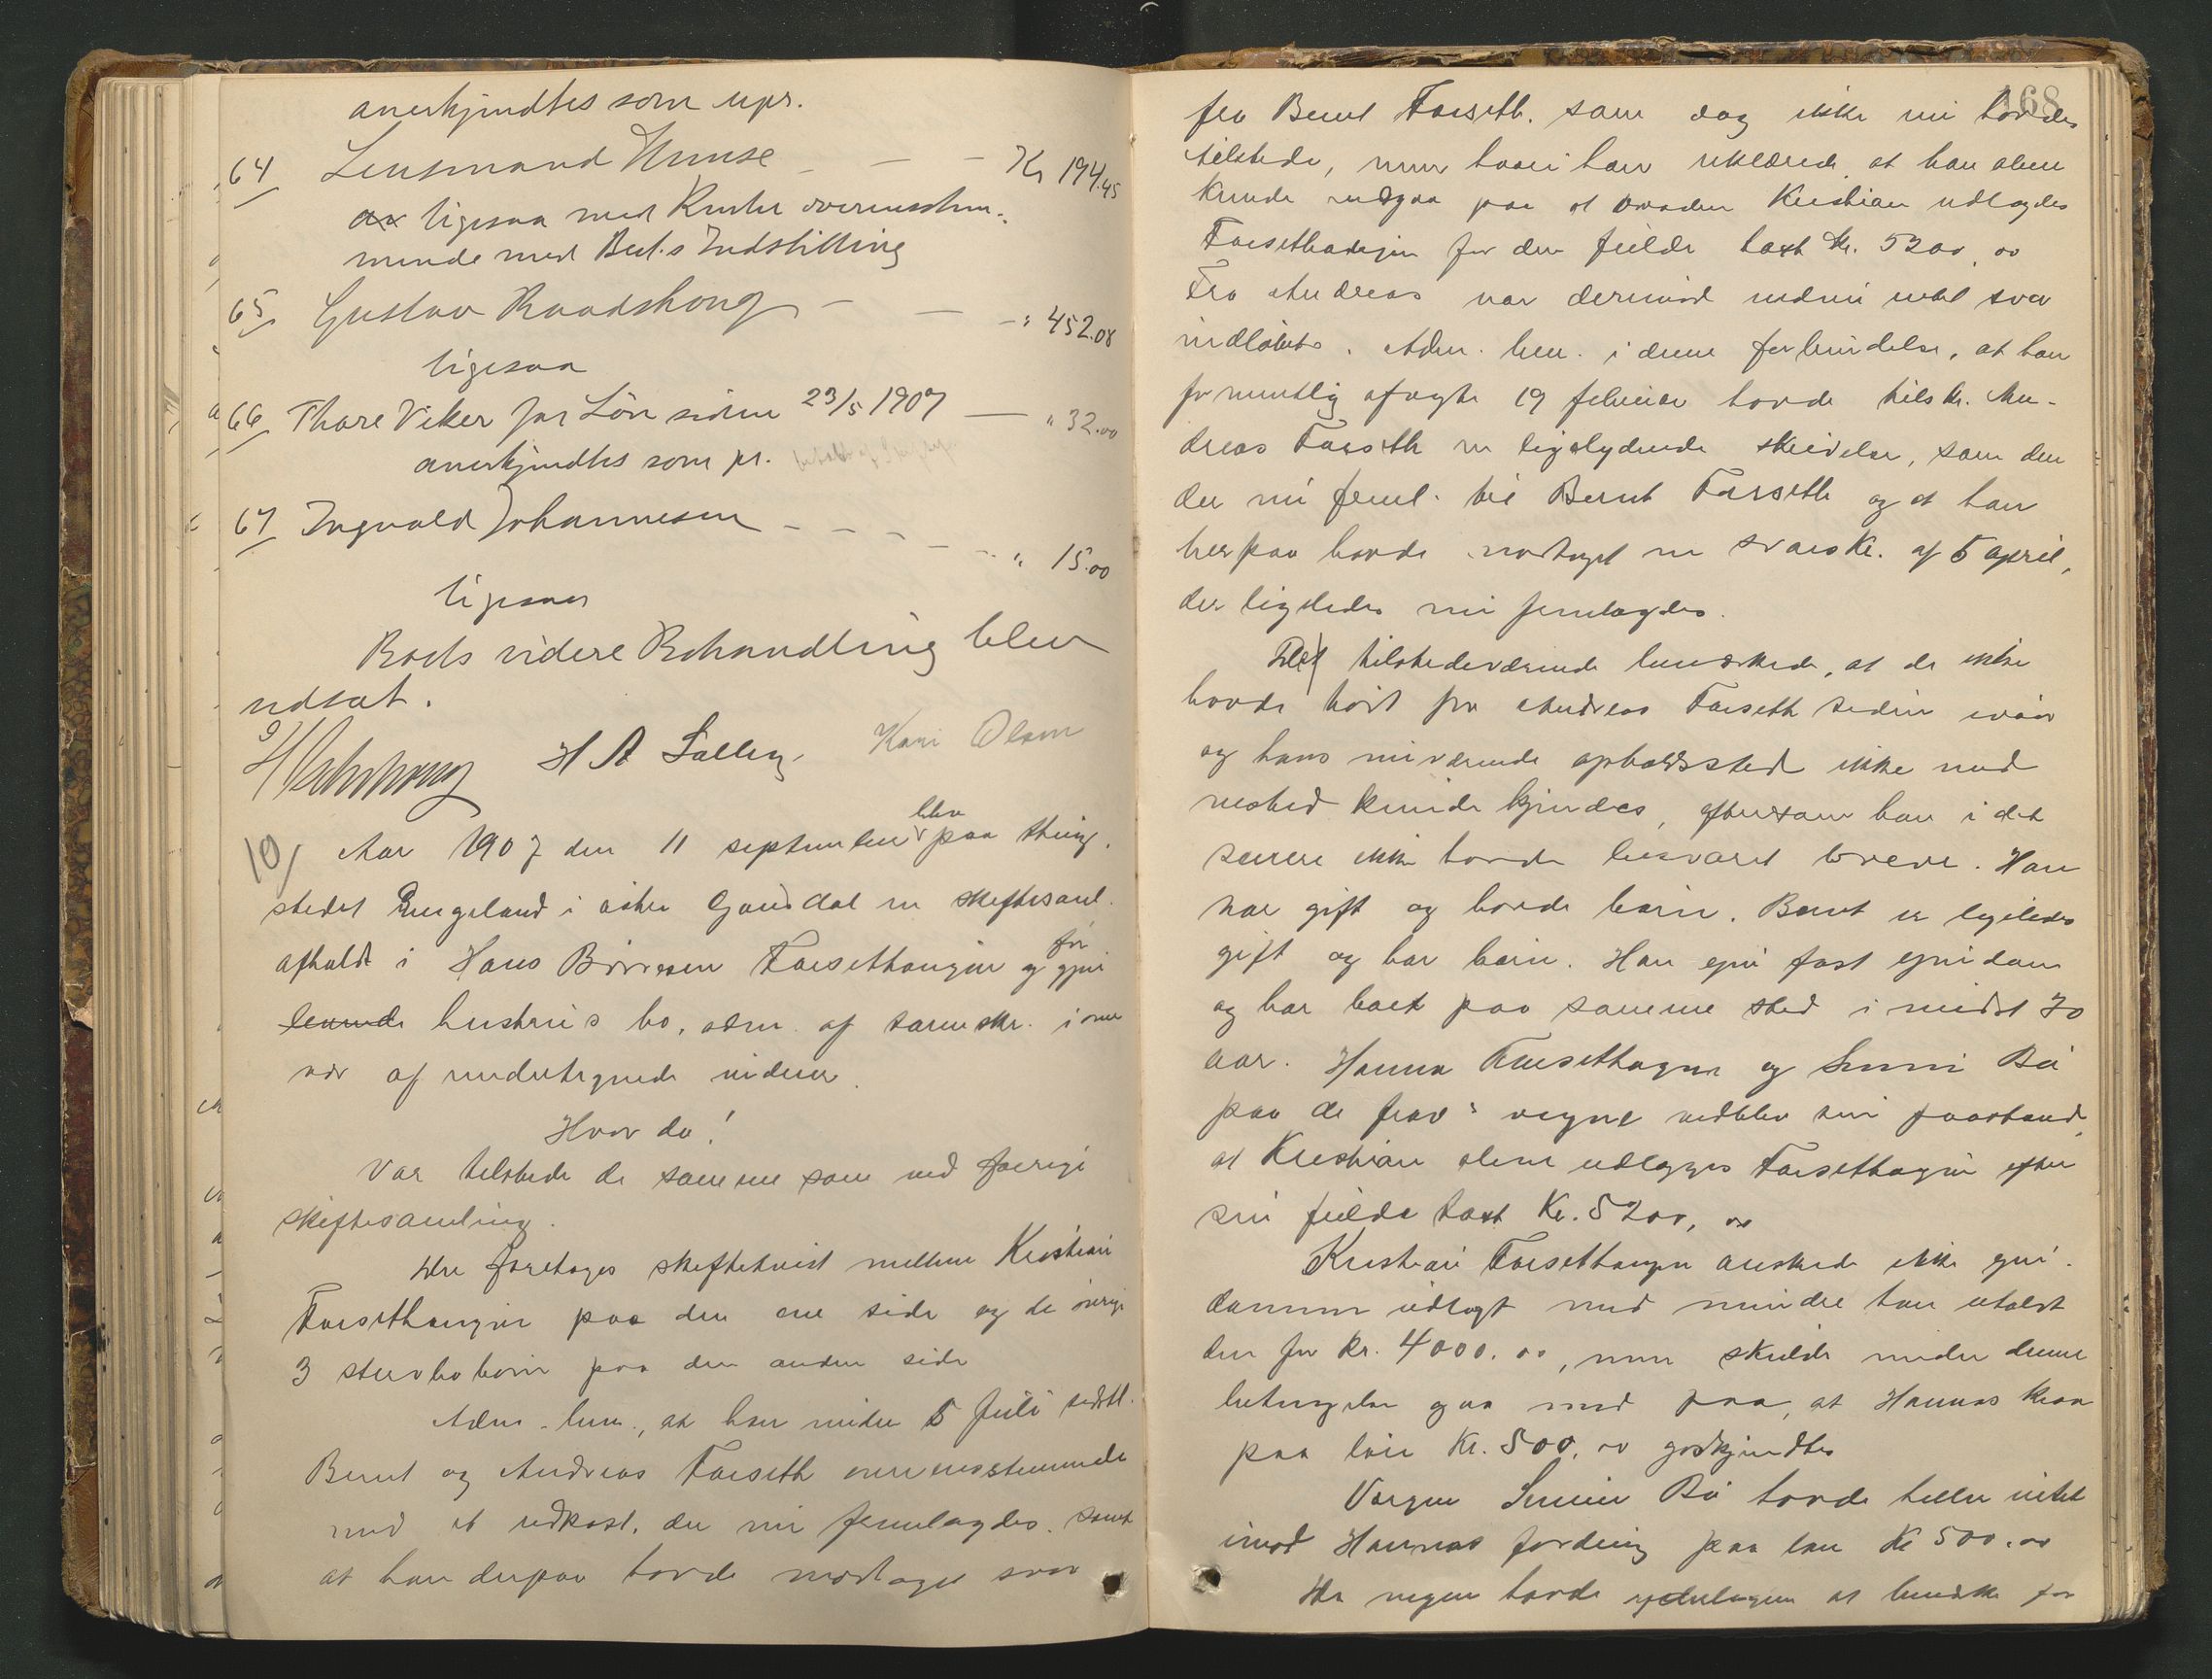 anerkjendtes som upr.
64 Lensmand Hunse — — Kr 194.45
ligesaa med Renter overensstem-
mende med Best.s Indstilling
65 Gustav Raadshoug — — — " 452.08
ligesaa
66 Thore Viker for Løn siden 23/5 1907 — " 32.00
anerkjendtes som pr.
67 Ingvald Johannesen - - - - - " 15.00
ligesaa
Boets videre Behandling blev
udsat.
H A Sælleg. Kari Olsen
10/ Aar 1907 den 11 september blev paa thing-
stedet Engeland i østre Gausdal en skiftesaml.
afholdt i Hans Børresen Forsethaugen og før gjen
levende hustrus bo, adm. af sorenskr. i nær
vær af undertegnede vidner.
Hvor da!
Var tilstede de samme som ved forrige
skiftesamling.
Der foretages skiftetvist mellem Kristian
Forsethaugen paa den ene side og de øvrige
3 stervbobørn paa den anden side
Adm. bem., at han under 5 juli sidstl.
Bernt og Andreas Forseth overensstemmende
med et udkast, der nu fremlagdes, samt
at han derpaa havde modtaget svar
168
fra Bernt Forseth, som dog ikke nu havdes
tilstede, men hvori han erklærede, at han alene
kunde indgaa paa at broderen Kristian udlagdes
Forsethaugen for den fulde taxt Kr. 5200,00
Fra Andreas var derimod endnu intet svar
indløbet. Adm. bem. i denne forbindelse, at han
formentlig afvigte 19 februar havde tilskr. An-
dreas Forseth en ligelydende skrivelse, som den
der nu freml. til Bernt Forseth og at han
herpaa havde modtaget en svarskr. af 5 april,
der ligeledes nu fremlagdes.
De tilstedeværende bemærkede, at de ikke
havde hørt fra Andreas Forseth siden ivaar
og hans nuværende opholdssted ikke med
vished kunde kjendes, eftersom han i det
senere ikke havde besvaret breve. Han
var gift og havde børn. Bernt er ligeledes
gift og har børn. Han eier fast eiendom
og har boet paa samme sted i mindst 20
aar. Hanna Forsethaugen og Simen Bø
paa de frav.s vegne vedblev sin paastand,
at Kristian alene udlægges Forsethaugen efter
sin fulde taxt Kr. 5200,00
Kristian Forsethaugen ønskede ikke eien-
dommen udlagt med mindre han erholdt
den for Kr. 4000.00, men skulde under denne
betingelse gaa med paa, at Hannas krav
paa løn Kr. 500.00 godkjendtes
Vergen Simen Bø havde heller intet
imod Hannas fordring paa løn Kr 500.00
Da ingen havde yderligere at bemærke for